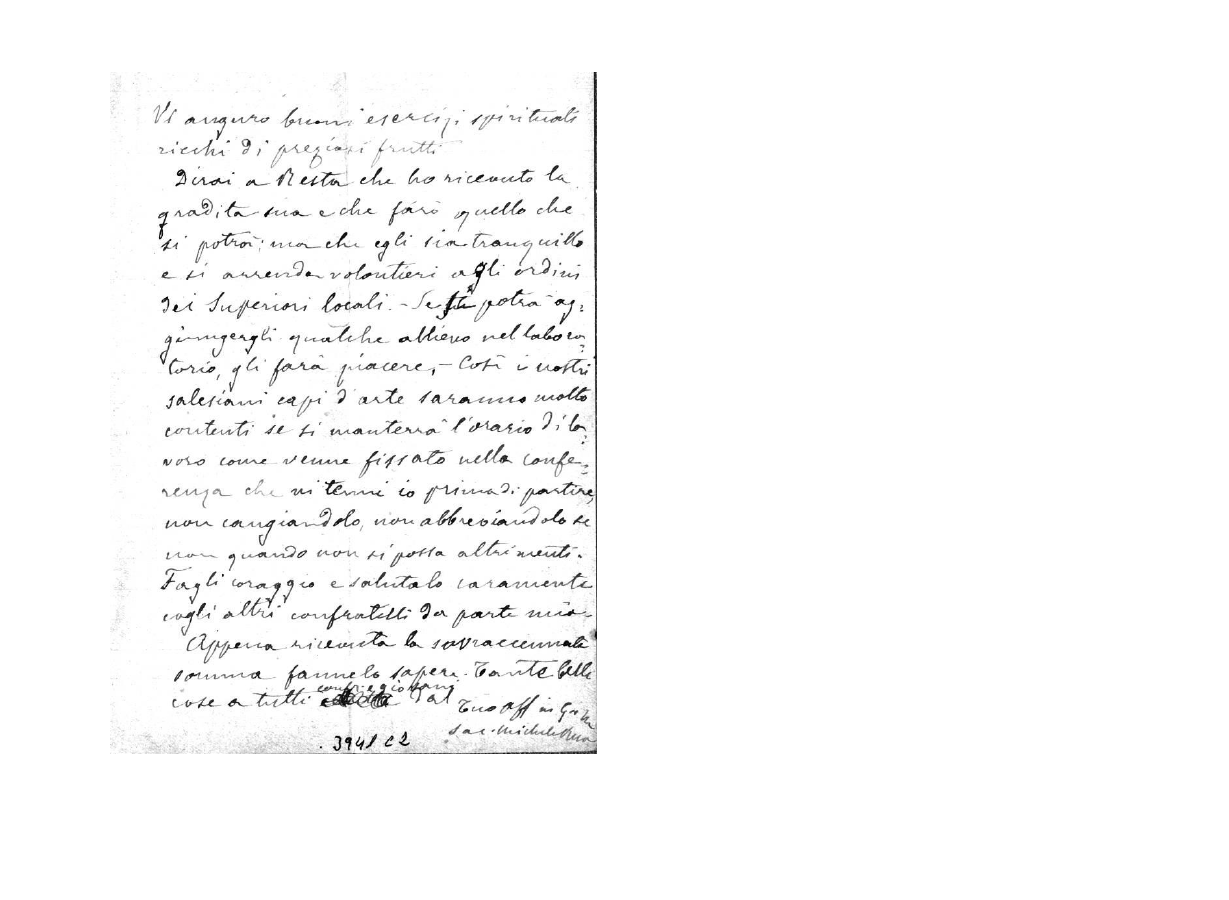 Vi auguro buoni esercizi spirituali
ricchi di preziosi frutti
Dirai a Resta che ho ricevuto la
gradita sua e che farò quello che
si potrà; ma che egli sia tranquillo
e si arrenda volontieri agli ordini
dei Superiori locali. - Se si potrà ag=
giungergli qualche allievo nel labora=
torio, gli farà piacere, - Così i nostri
salesiani capi d'arte saranno molto
contenti se si manterrà l'orario di la=
voro come venne fissato nella confe=
renza che vi tenni io prima di partire,
non cangiandolo, non abbreviandolo se
non quando non si possa altrimenti.
Fagli coraggio e salutalo caramente
cogli altri confratelli da parte mia.
Appena ricevuta la sovraccennata
somma fammelo sapere. Tante belle
cose a tutti confr. e giovani dal
Tuo aff in G. e M.
Sac. Michele Rua
3941 C2